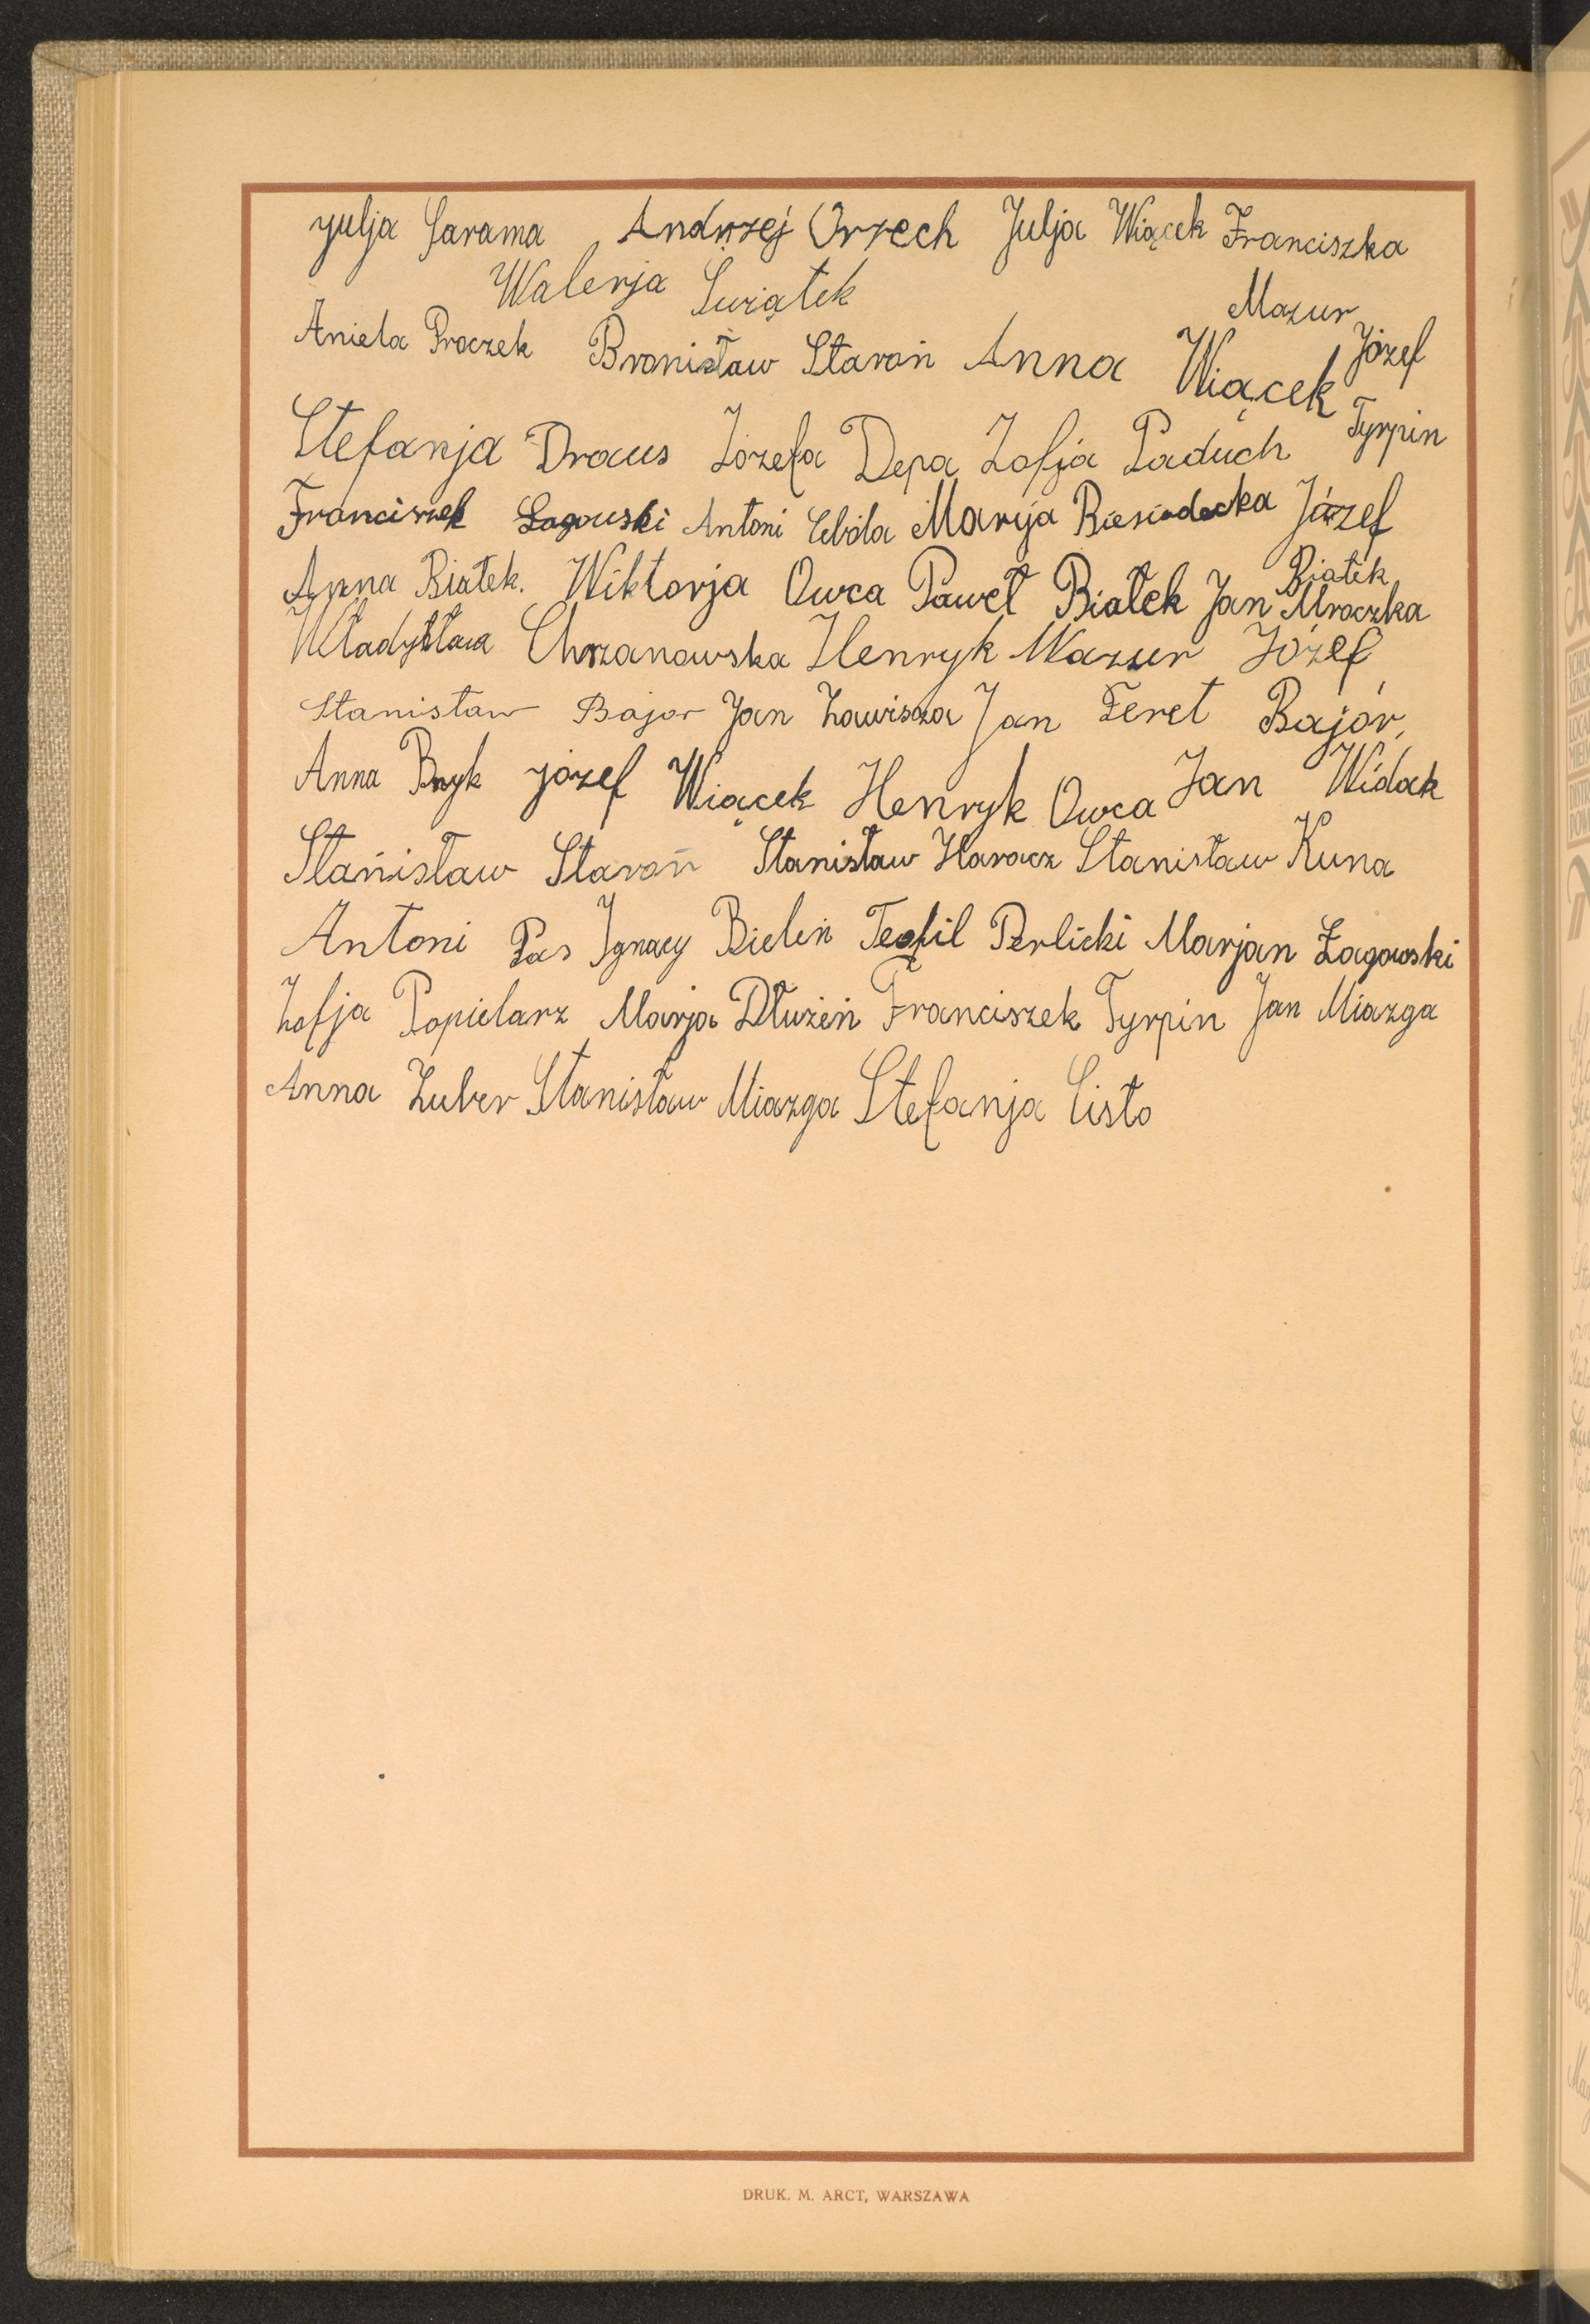 Julja Sarama Andrzej Orzech Julja Wiącek Franciszka
Walerja Świątek Mazur
Aniela Proczek Bronisław Staroń Anna Wiącek Józef
Stefanja Draus Józefa Depa Zofja Paduch Tyrpin
Franciszek Łagowski Antoni Cebóla Marija Biesiadecka Józef
Anna Białek. Wiktorja Owca Paweł Białek Jan Mroczka Białek
Władysława Chrzanowska Henryk Mazur Józef
Stanisław Bajor Jan Zawisza Jan Feret Bajór,
Anna Bryk Józef Wiącek Henryk Owca Jan Widak
Stanisław Staroń Stanisław Haracz Stanisław Kuna
Antoni Pas Ignacy Bieleń Teofil Perlicki Marjan Łagowski
Zofja Popielarz Marja Dłużeń Franciszek Tyrpin Jan Miazga
Anna Zuber Stanisław Miazga Stefanja Cisło
DRUK. M. ARCT, WARSZAWA